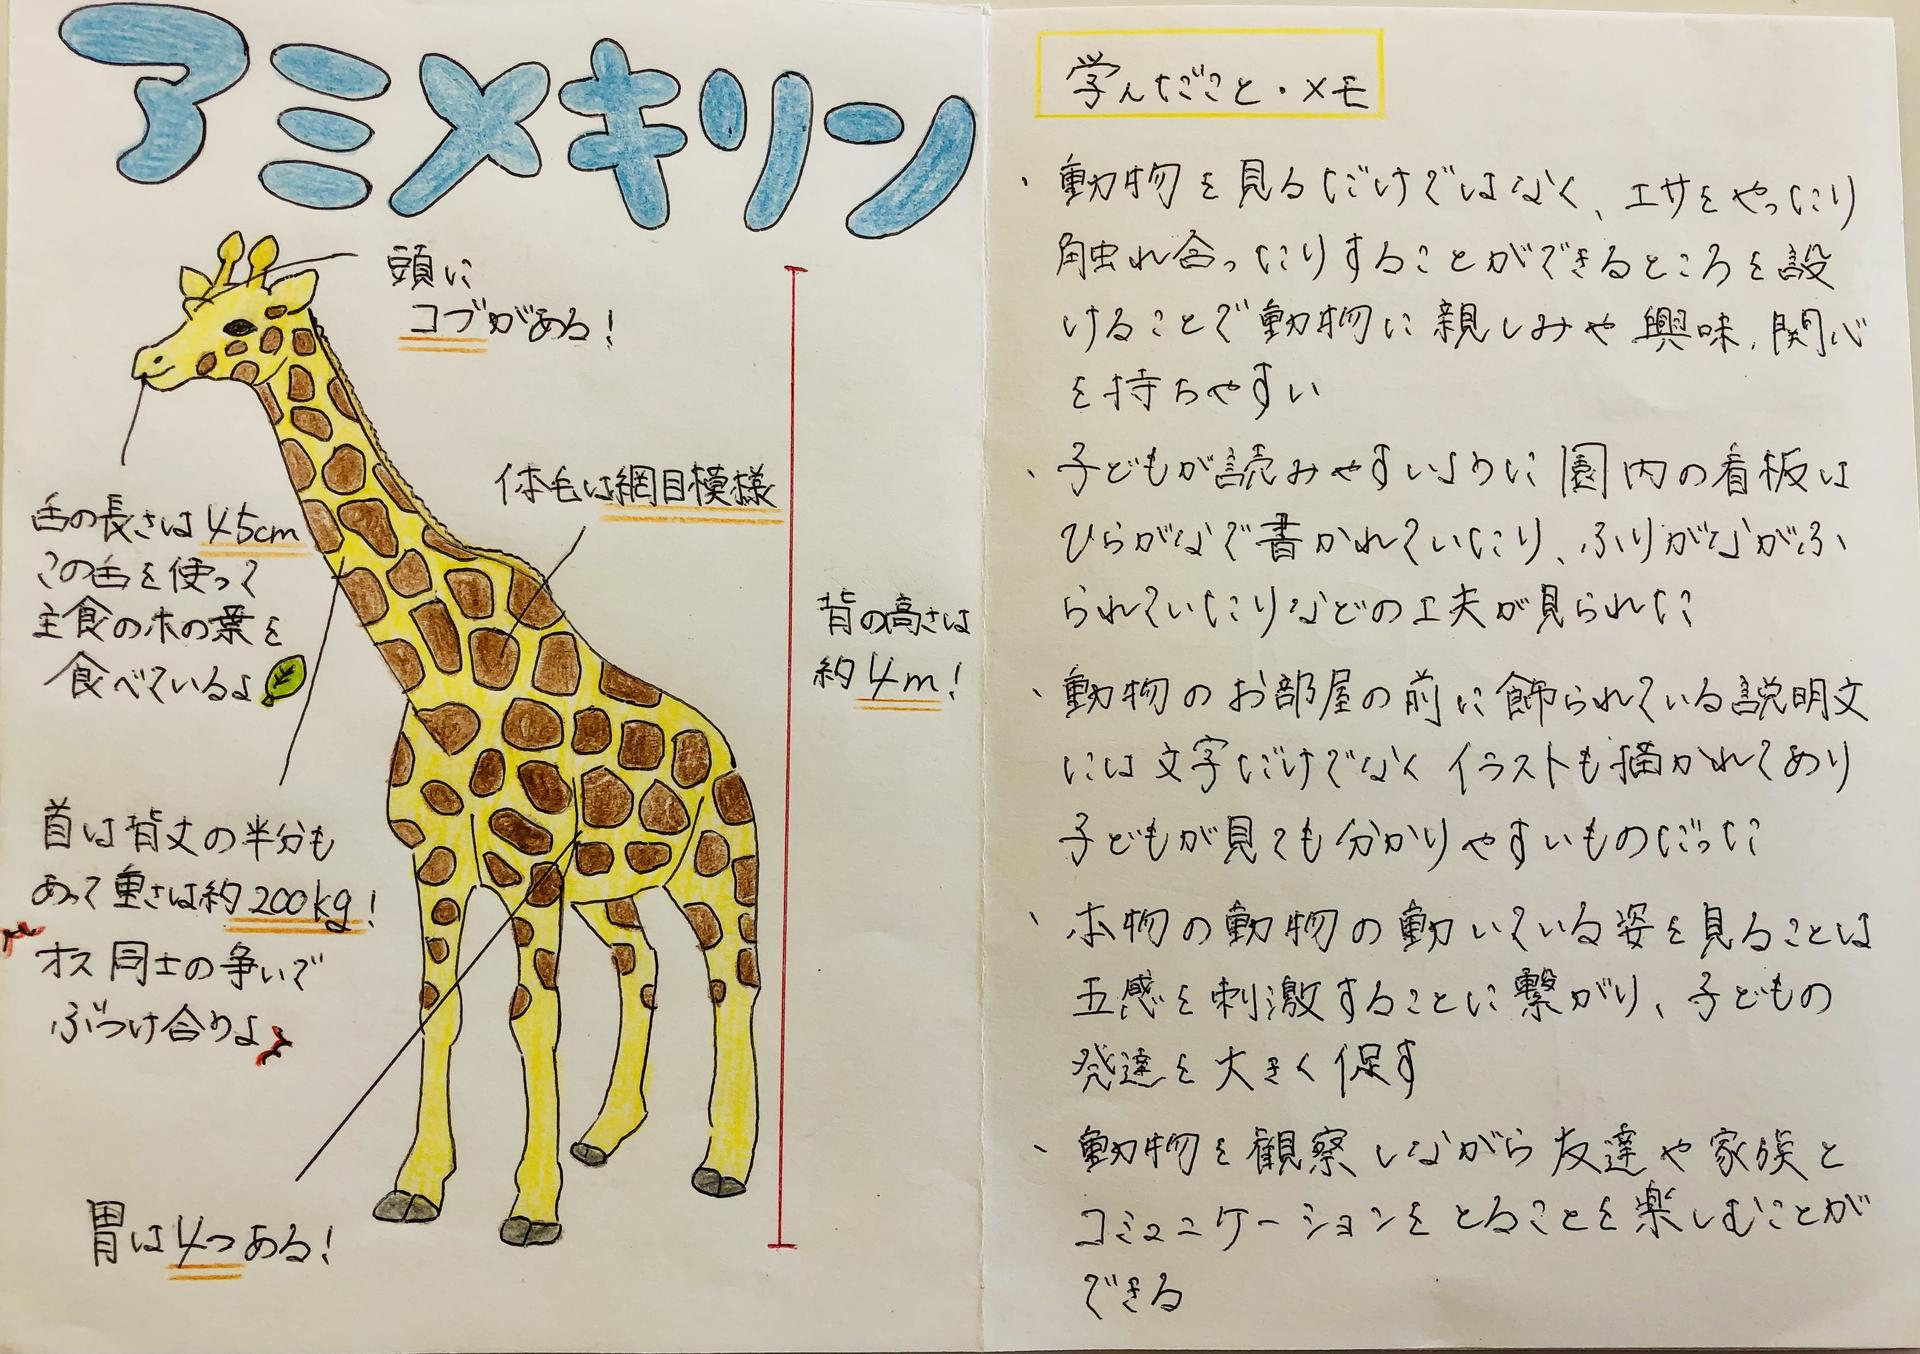 アミメキリン
頭に
コブがある!
体毛は網目模様
舌の長さは45cm
この舌を使って
主食の木の葉を
食べているよ
背の高さは
約4m!
首は背丈の半分も
あって重さは約200kg!
オス同士の争いで
ぶつけ合うよ
胃は4つある!
学んだこと・メモ
・動物を見るだけではなく、エサをやったり
触れ合ったりすることができるところを設
けることで動物に親しみや興味、関心
を持ちやすい
・子どもが読みやすいように園内の看板は
ひらがなで書かれていたり、ふりがながふ
られていたりなどの工夫が見られた
・動物のお部屋の前に飾られている説明文
には文字だけでなくイラストも描かれてあり
子どもが見ても分かりやすいものだった
・本物の動物の動いている姿を見ることは
五感を刺激することに繋がり、子どもの
発達を大きく促す
・動物を観察しながら友達や家族と
コミュニケーションをとることを楽しむことが
できる